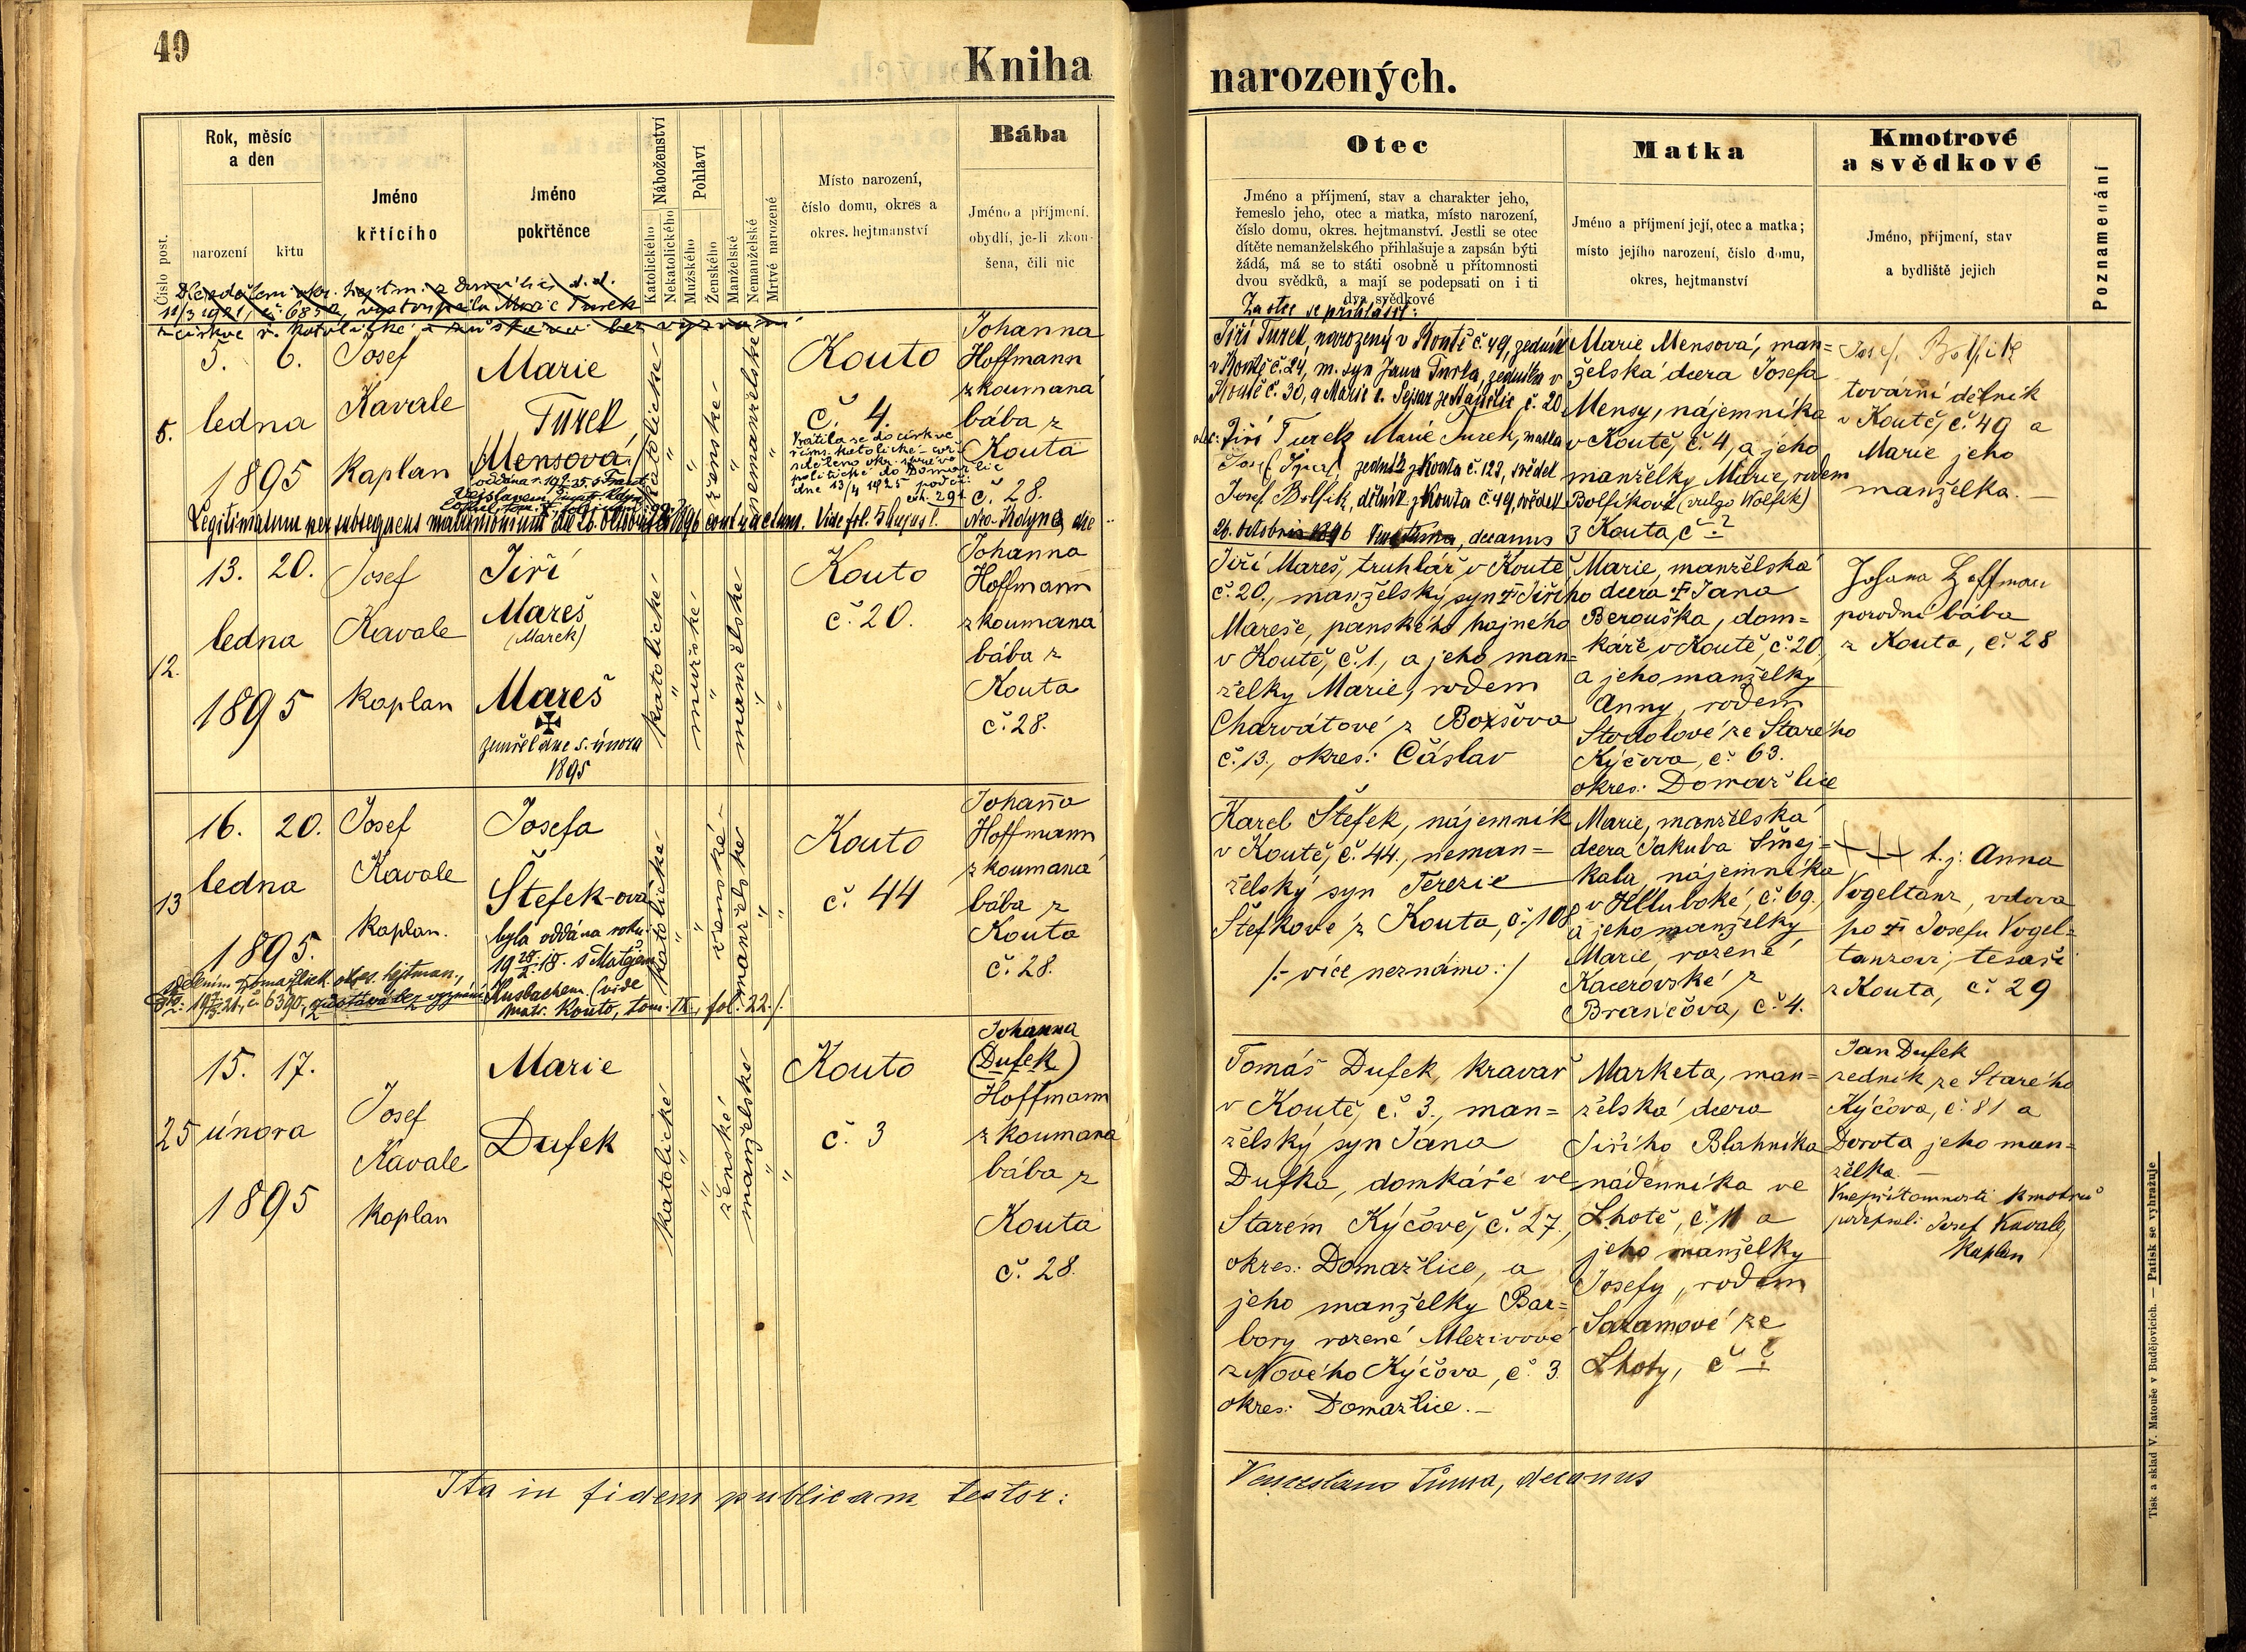 49
Kniha
narozených.
Číslo post.
Rok, měsíc
a den
narození
křtu
Jméno
křtícího
Jméno
pokřtěnce
Náboženství
Katolického
Nekatolického
Pohlaví
Mužského
Ženského
Manželské
Nemanželské
Mrtvě narozené
Místo narození,
číslo domu, okres a
okres. hejtmanství
Bába
Jméno a příjmení,
obydlí, je-li zkou-
šena, čili nic
Otec
Jméno a příjmení, stav a charakter jeho,
řemeslo jeho, otec a matka, místo narození,
číslo domu, okres. hejtmanství. Jestli se otec
dítěte nemanželského přihlašuje a zapsán býti
žádá, má se to státi osobně u přítomnosti
dvou svědků, a mají se podepsati on i ti
dva svědkové
Matka
Jméno a příjmení její, otec a matka;
místo jejího narození, číslo domu,
okres, hejtmanství
Kmotrové
a svědkové
Jméno, příjmení, stav
a bydliště jejich
Poznamenání
vystoupila Marie Turek
z církve ř. katolické a zůstává bez vyznání
5.
5. 6.
ledna
1895
Josef
Kavale
kaplan
Marie
Turek
Mensová
katolické
ženské
nemanželské
Kouto
č. 4.
Vrátila se do církve
řím. katolické
politické do Domažlic
dne 13/4 1925 pod č.
Johanna
Hoffmann
zkoumaná
bába z
Kouta
č. 28.
Legitimatum per subsequens matrimonium die 26. Octobris 1896 contractum. Vide fol.
Za otce se přihlásil:
Jiří Turek, narozený v Koutě č. 49, zedník
v Koutě č. 24, m. syn Jana Turka, zedníka v
Koutě č. 30, a Marie
č. 20
otec: Jiří Turek Marie Turek, matka
Josef zedník z Kouta č. 123, svědek
Josef Bolfík, dělník z Kouta č. 49, svědek
26. Octobris 1896 decanus
Marie Mensová, man=
želská dcera Josefa
Mensy, nájemníka
v Koutě, č. 4, a jeho
manželky Marie, rodem
Bolfíkové (vulgo Wolfík)
z Kouta, č. ?
Josef Bolfík
tovární dělník
v Koutě, č. 49 a
Marie jeho
manželka. —
12.
13. 20.
ledna
1895
Josef
Kavale
kaplan
Jiří
Mareš
(Marek)
Mareš
zemřel dne 5. února
1895
katolické
mužské
manželské
Kouto
č. 20.
Johanna
Hoffmann
zkoumaná
bába z
Kouta
č. 28.
Jiří Mareš, truhlář v Koutě
č. 20., manželský syn † Jiřího
Mareše, panského hajného
v Koutě, č. 1., a jeho man=
želky Marie, rodem
Charvátové z Boxšova
č. 13., okres: Čáslav
Marie, manželská
dcera † Jana
Berouška, dom=
káře v Koutě, č. 20,
a jeho manželky
Anny, rodem
Stodolové ze Starého
Kýčova, č. 63.
okres: Domažlice
Johana Hoffman
porodní bába
z Kouta, č. 28
13
16. 20.
ledna
1895.
Josef
Kavale
kaplan.
Josefa
Štefek-ová
byla oddána roku
s Matějem
Kusbachem (vide
matr. Kouto, tom. IX, fol. 22./.
č. 6390, zůstává bez vyznání
katolické
ženské
manželské
Kouto
č. 44
Johanna
Hoffmann
zkoumaná
bába z
Kouta
č. 28.
Karel Štefek, nájemník
v Koutě, č. 44., neman=
želský syn Terezie
Štefkové z Kouta, č. 108
/:- více neznámo:/
Marie, manželská
dcera Jakuba Smej=
kala, nájemníka
v Hluboké, č. 69.,
a jeho manželky
Marie, rozené
Kacerovské z
Brančova, č. 4.
+++ t. j. Anna
Vogeltanz, vdova
po † Josefu Vogel=
tanzovi, tesaři
z Kouta, č. 29
25
15. 17.
února
1895
Josef
Kavale
kaplan
Marie
Dufek
katolické
ženské
manželské
Kouto
č. 3
Johanna
(Dufek)
Hoffmann
zkoumaná
bába z
Kouta
č. 28.
Tomáš Dufek, kravař
v Koutě, č. 3., man=
želský syn Jana
Dufka, domkáře ve
Starém Kýčově, č. 27.,
okres: Domažlice, a
jeho manželky Bar=
bory rozené Mlezivové
z Nového Kýčova, č. 3.
okres: Domažlice. —
Marketa, man=
želská dcera
Jiřího Blahníka
nádenníka ve
Lhotě, č. 11 a
jeho manželky
Josefy, rodem
Sazamové ze
Lhoty, č. ?
Jan Dufek
zedník ze Starého
Kýčova, č. 81 a
Dorota jeho man=
želka. —
V nepřítomnosti kmotrů
podepsal: Josef Kavale,
kaplan
Ita in fidem publicam testor:
Venceslaus Tůma, decanus
Tisk a sklad V. Matouše v Budějovicích. — Patisk se vyhražuje